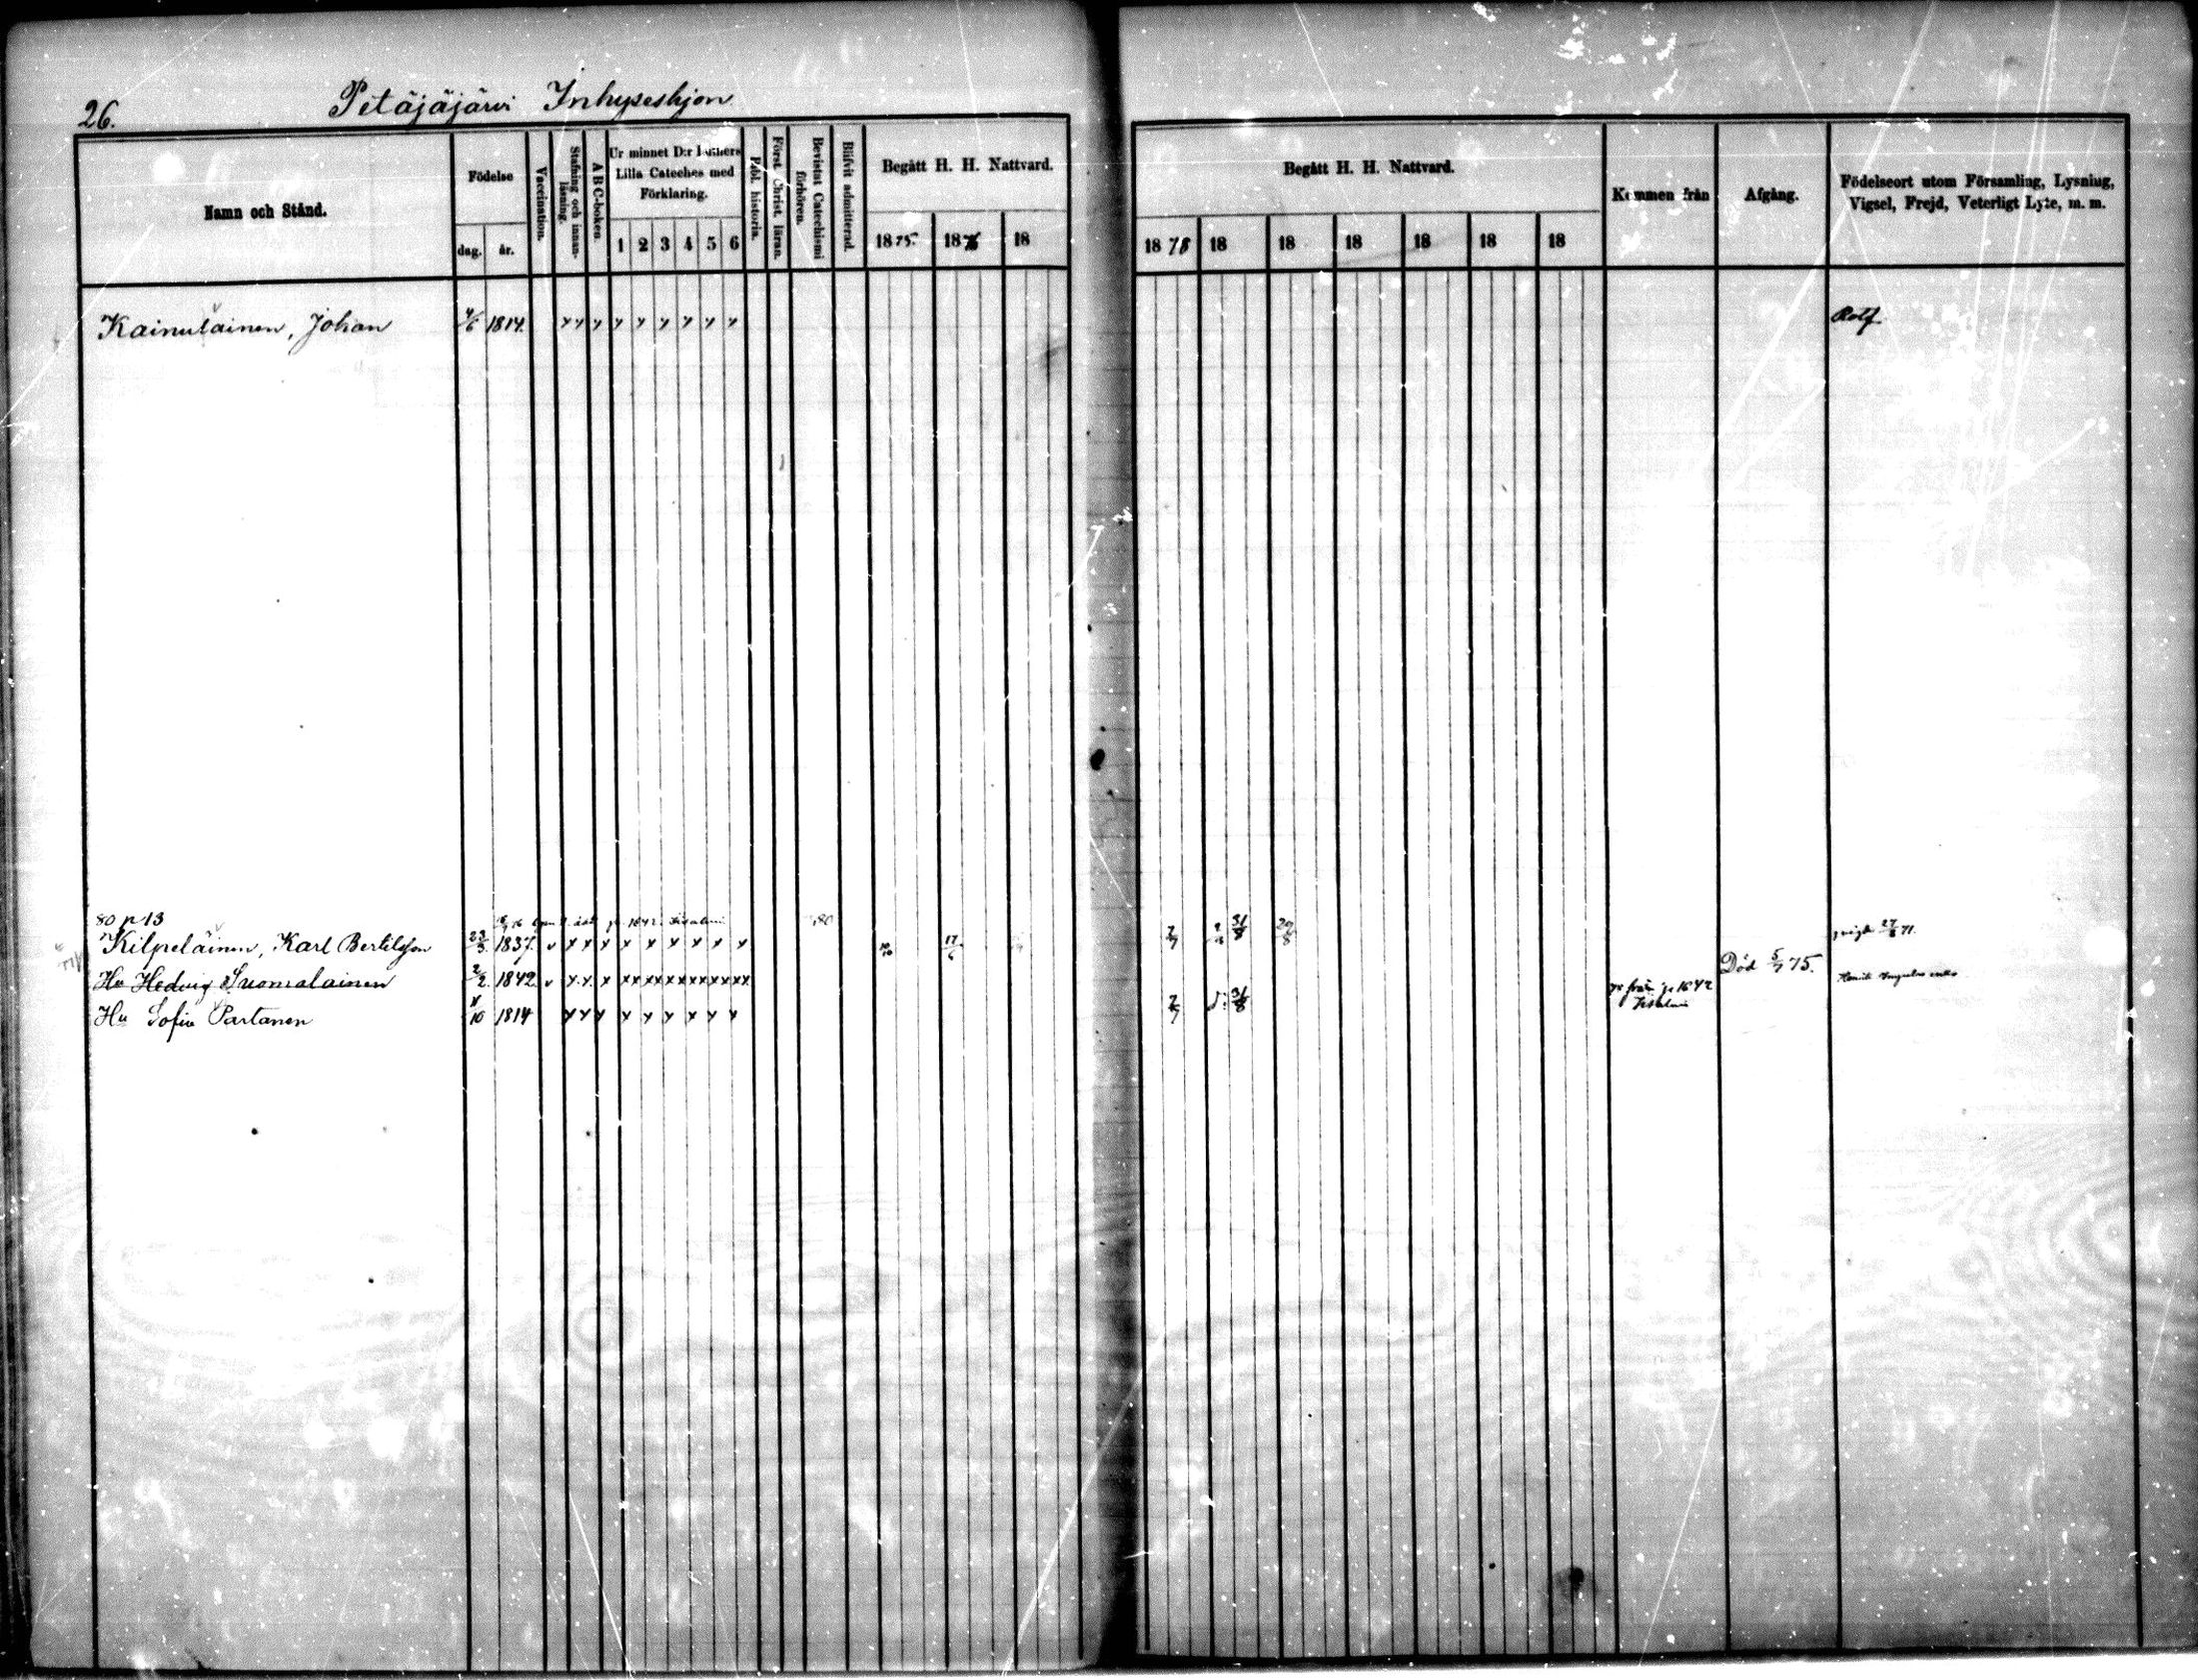 26. Petäjäjärvi Inhyseshjon
Namn och Stånd.
Födelse
dag. år.
Vaccination.
Stafning och innanläsning.
A B C-boken.
Ur minnet D:r Luthers Lilla Cateches med Förklaring.
1 2 3 4 5 6
Bibl. historia.
Först. Christ. läran.
Bevistat Catechismi förhören.
Blifvit admitterad.
Begått H. H. Nattvard.
1875. 1876 18
Begått H. H. Nattvard.
1878 18 18 18 18 18 18
Kommen från
Afgång.
Födelseort utom Församling, Lysning, Vigsel, Frejd, Veterligt Lyte, m. m.
Kainulainen, Johan 4/6 1814. x x x x x x x x x
80 p 13
Kilpeläinen, Karl Bertilsson 23/3 1837. v x x x x x x x x x 17/6 7/7 31/8 20/8 27/8 71.
Hu Hedvig Suomalainen 2/2 1842 v x x x xx xx xx xx xx xx Död 5/7 75.
Hu Sofia Partanen /10 1814 x x x x x x x x x 7/7 31/8 från 1842